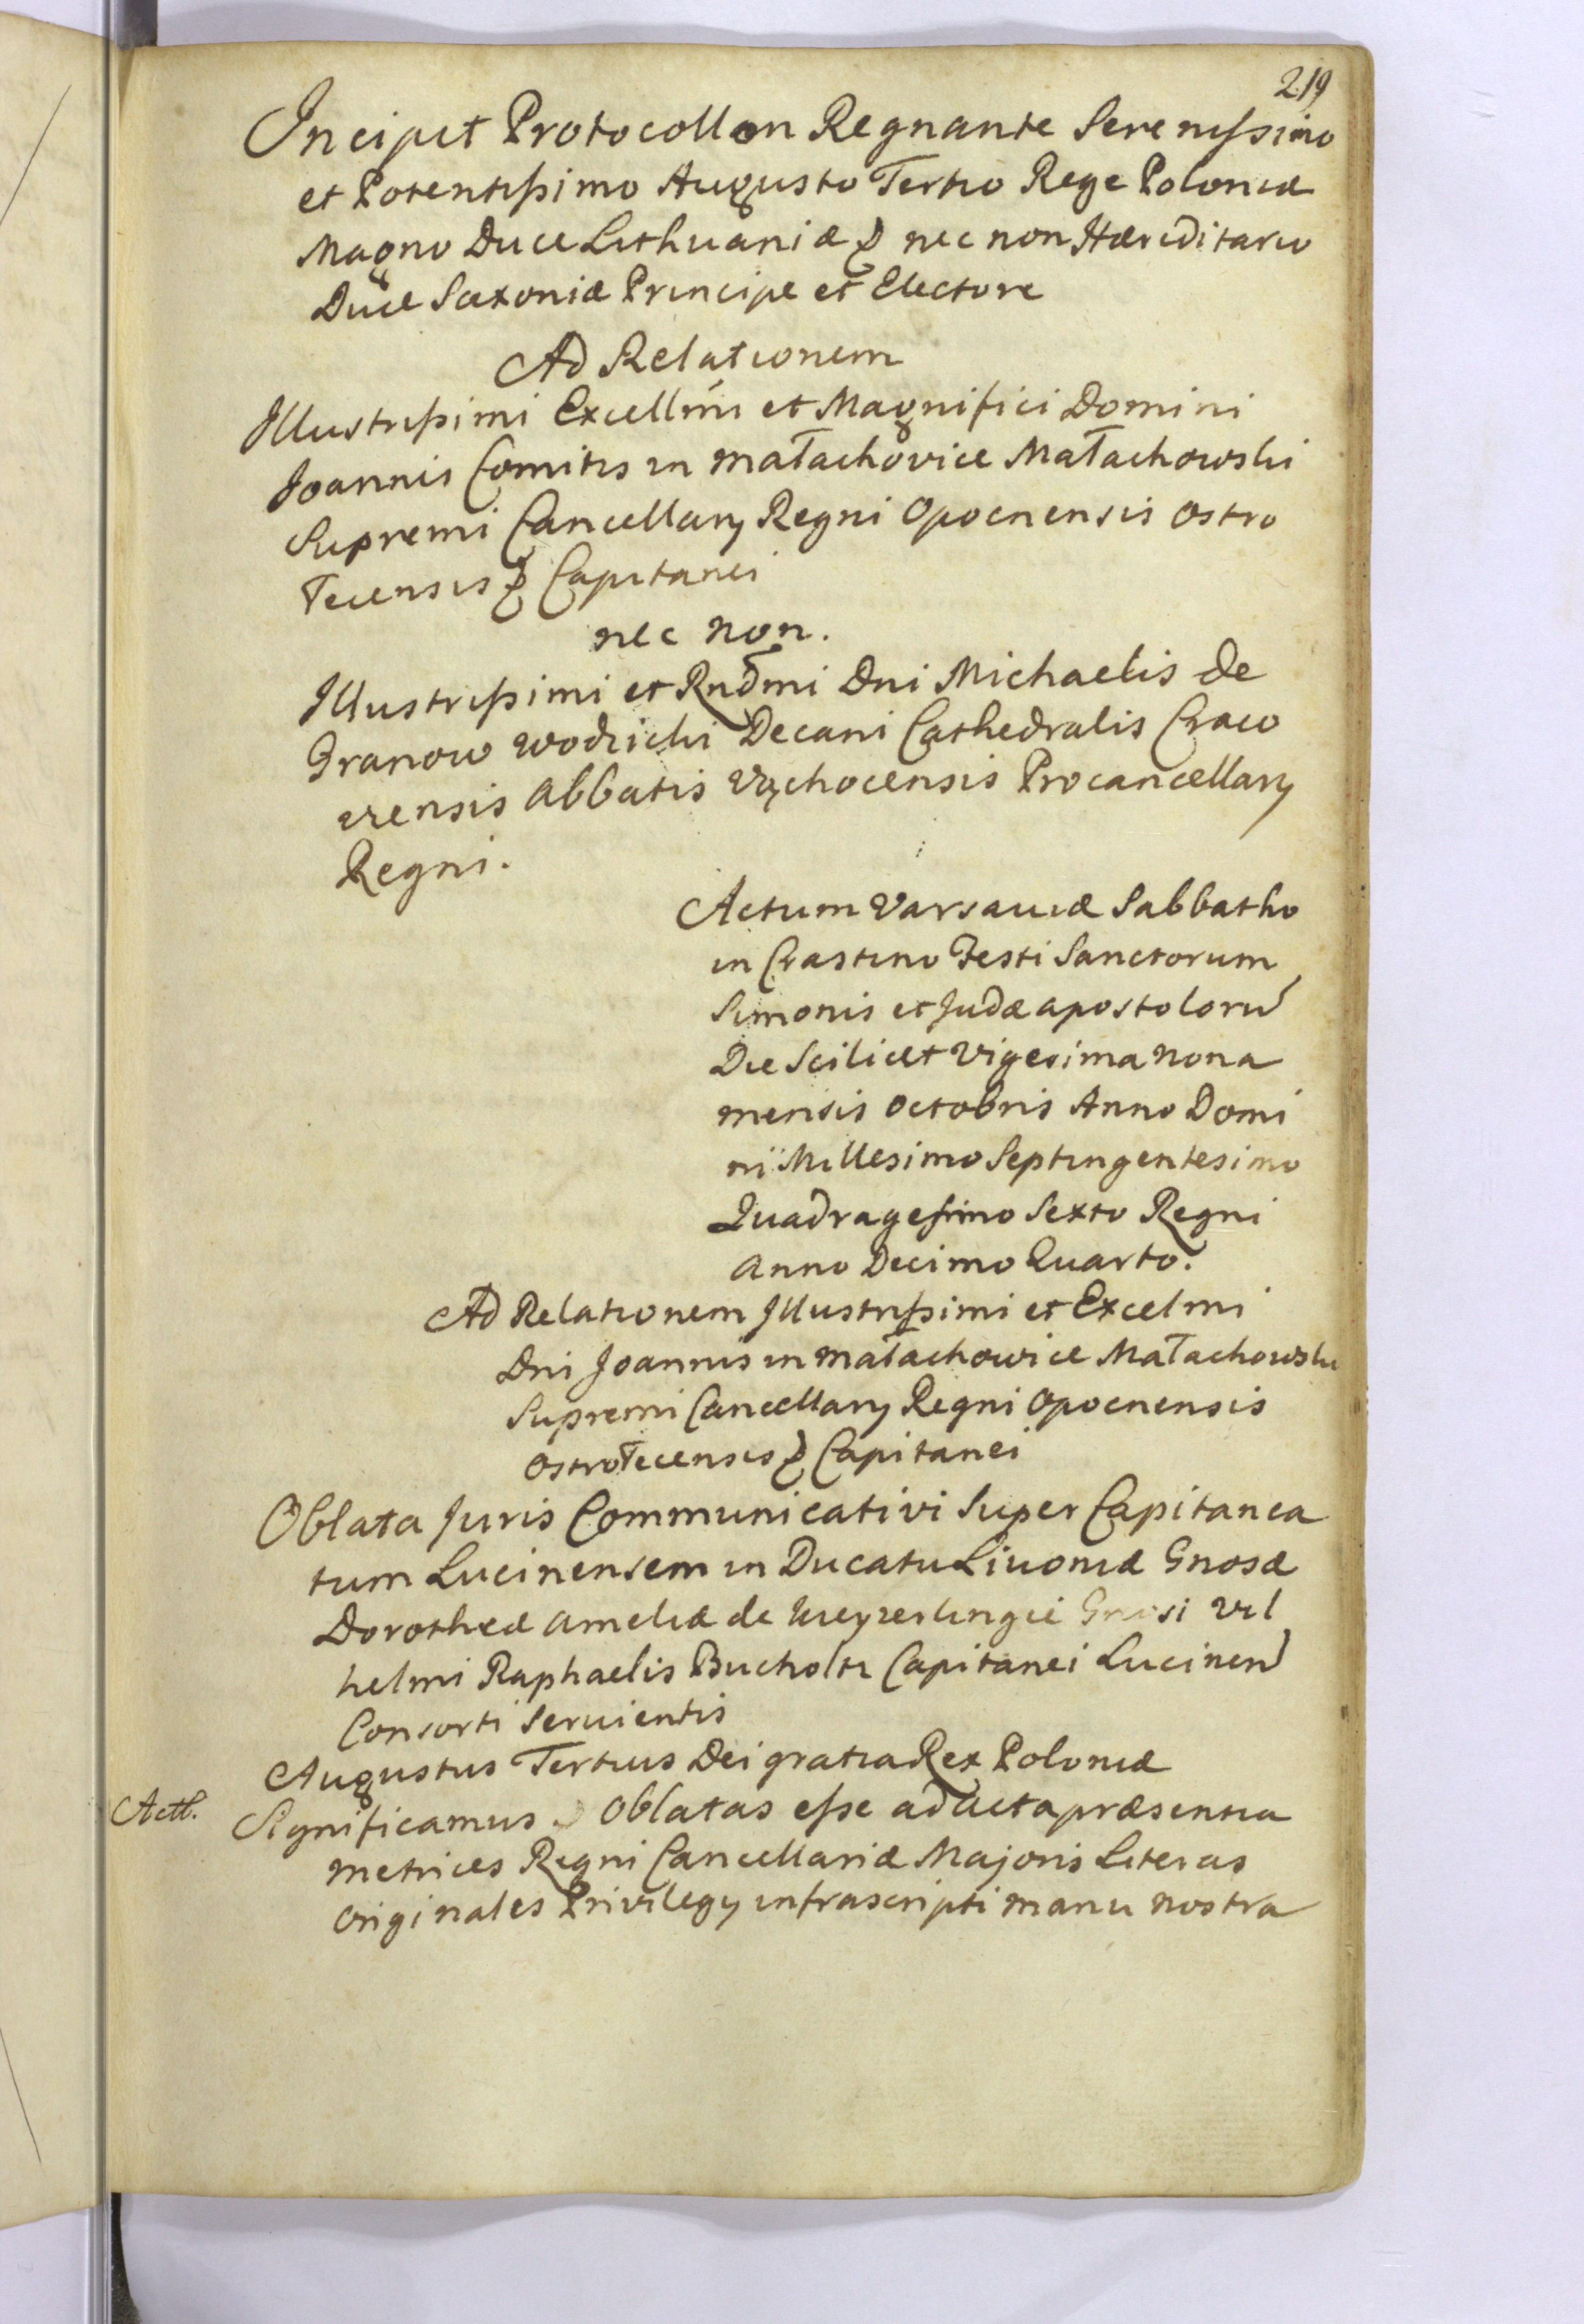 219
Incipit Protocollon Regnante Serenissimo
et Potentissimo Augusto Tertio Rege Poloniæ
Magno Duce Lithuaniæ & nec non Hæreditario
Duce Saxoniæ Principe et Electore
Ad Relationem
Illustrissimi Excellmi et Magnifici Domini
Joannis Comitis in Małachovice Małachowski
Supremi Cancellarij Regni Opocnensis Ostro
łecensis & Capitanei
nec non.
Illustrissimi et Rndmi Dni Michaelis de
Granow Wodzicki Decani Cathedralis Craco
viensis Abbatis Vąchocensis Procancellarij
Regni.
Actum Varsaviæ Sabbatho
in Crastino Festi Sanctorum
Simonis et Judæ Apostolorū
Die Scilicet Vigesima nona
mensis Octobris Anno Domi
ni Millesimo Septingentesimo
Quadragesimo Sexto Regni
Anno Decimo Quarto.
Ad Relationem Illustrissimi et Excelmi
Dni Joannis in Małachowice Małachowski
Supremi Cancellarij Regni Opocnensis
Ostrołecensis & Capitanei
Oblata Juris Communicativi Super Capitanea
tum Lucinensem in Ducatu Livoniæ Gnosæ
Dorotheæ Ameliæ de Keyzerlingie Gnosi Vil
helmi Raphaelis Bucholtz Capitanei Lucinen
Consorti Servientis
Augustus Tertius Dei gratia Rex Poloniæ
Actt.
Significamus & Oblatas esse ad Acta præsentia
metrices Regni Cancellariæ Majoris Literas
Originales Privilegij infrascripti manu nostra